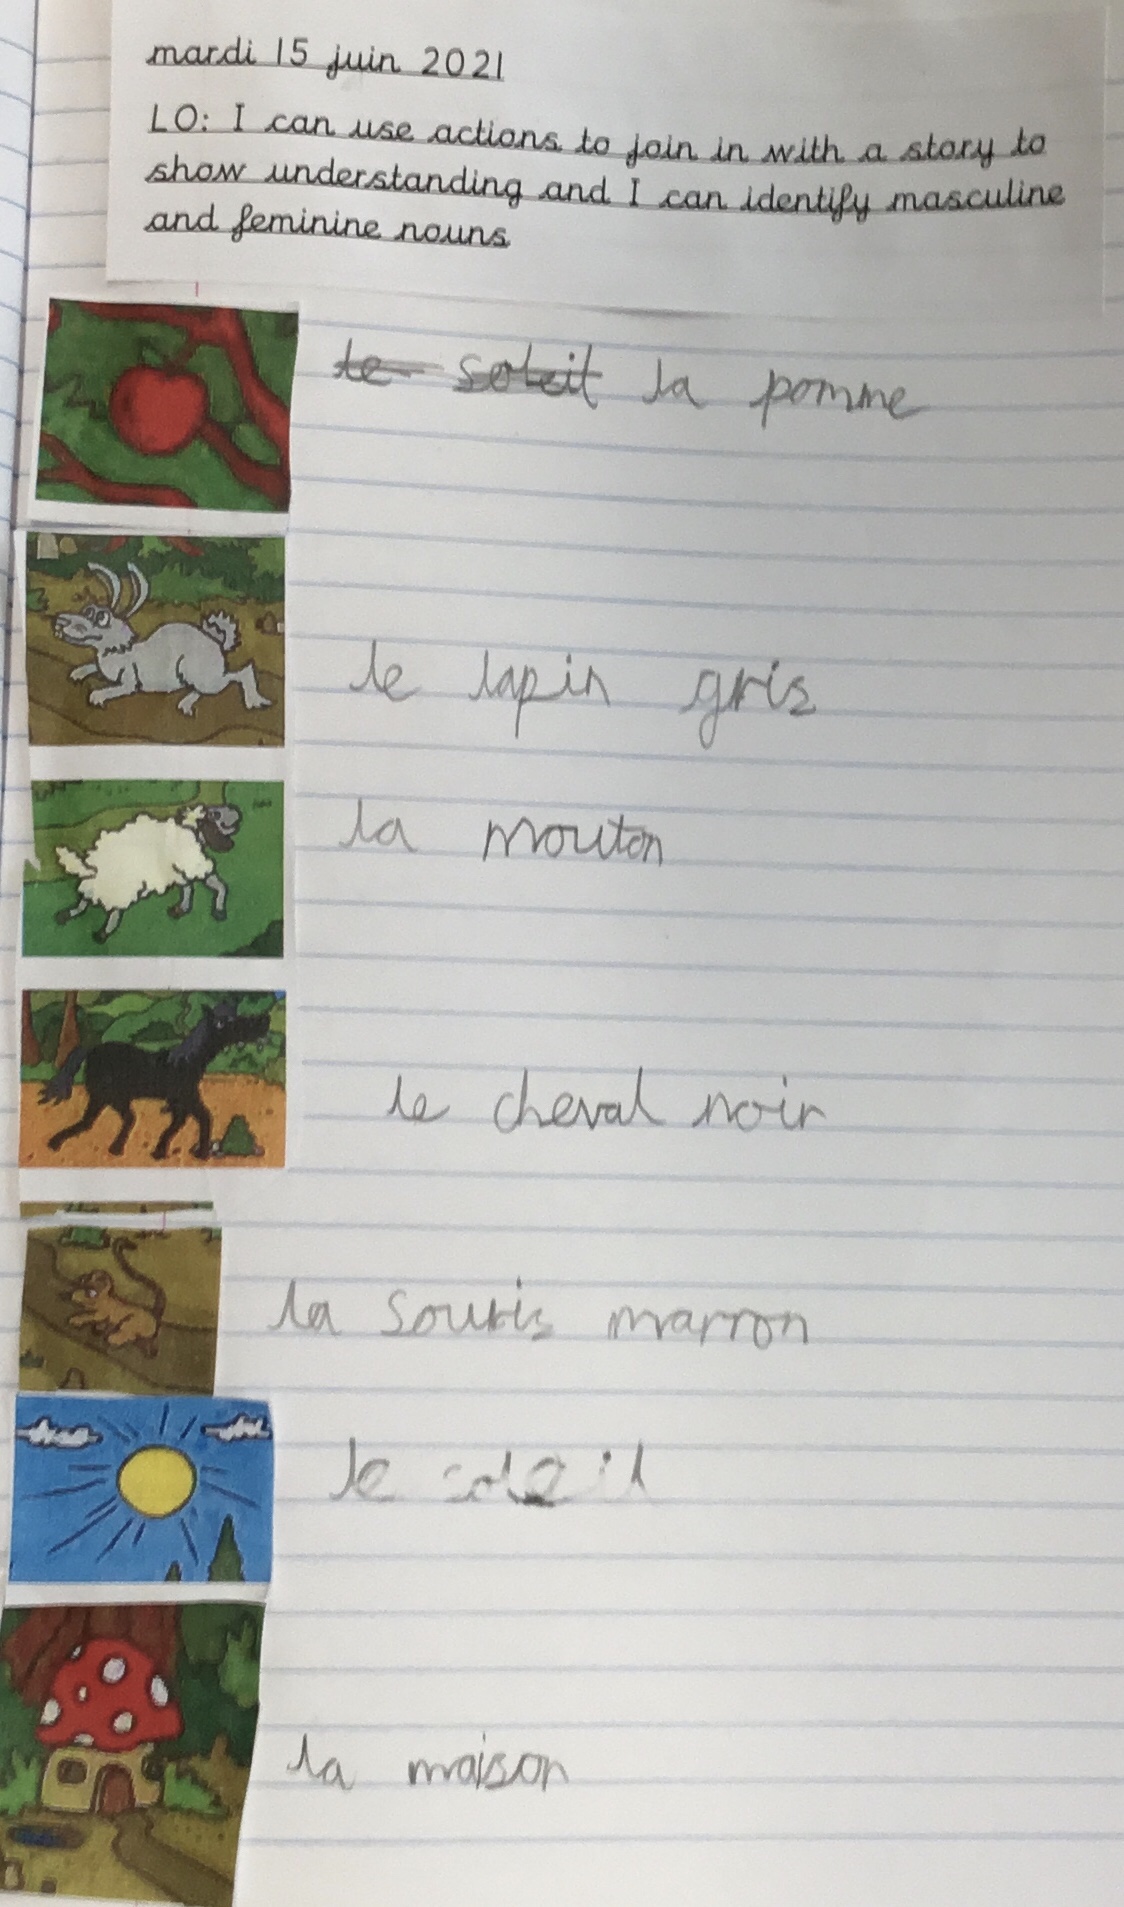 mardi 15 juin 2021
LO: I can use actions to join in with a story to
show understanding and I can identify masculine
and feminine nouns
le soleil la pomme
le lapin gris
la mouton
le cheval noir
la souris marron
le soleil
la maison